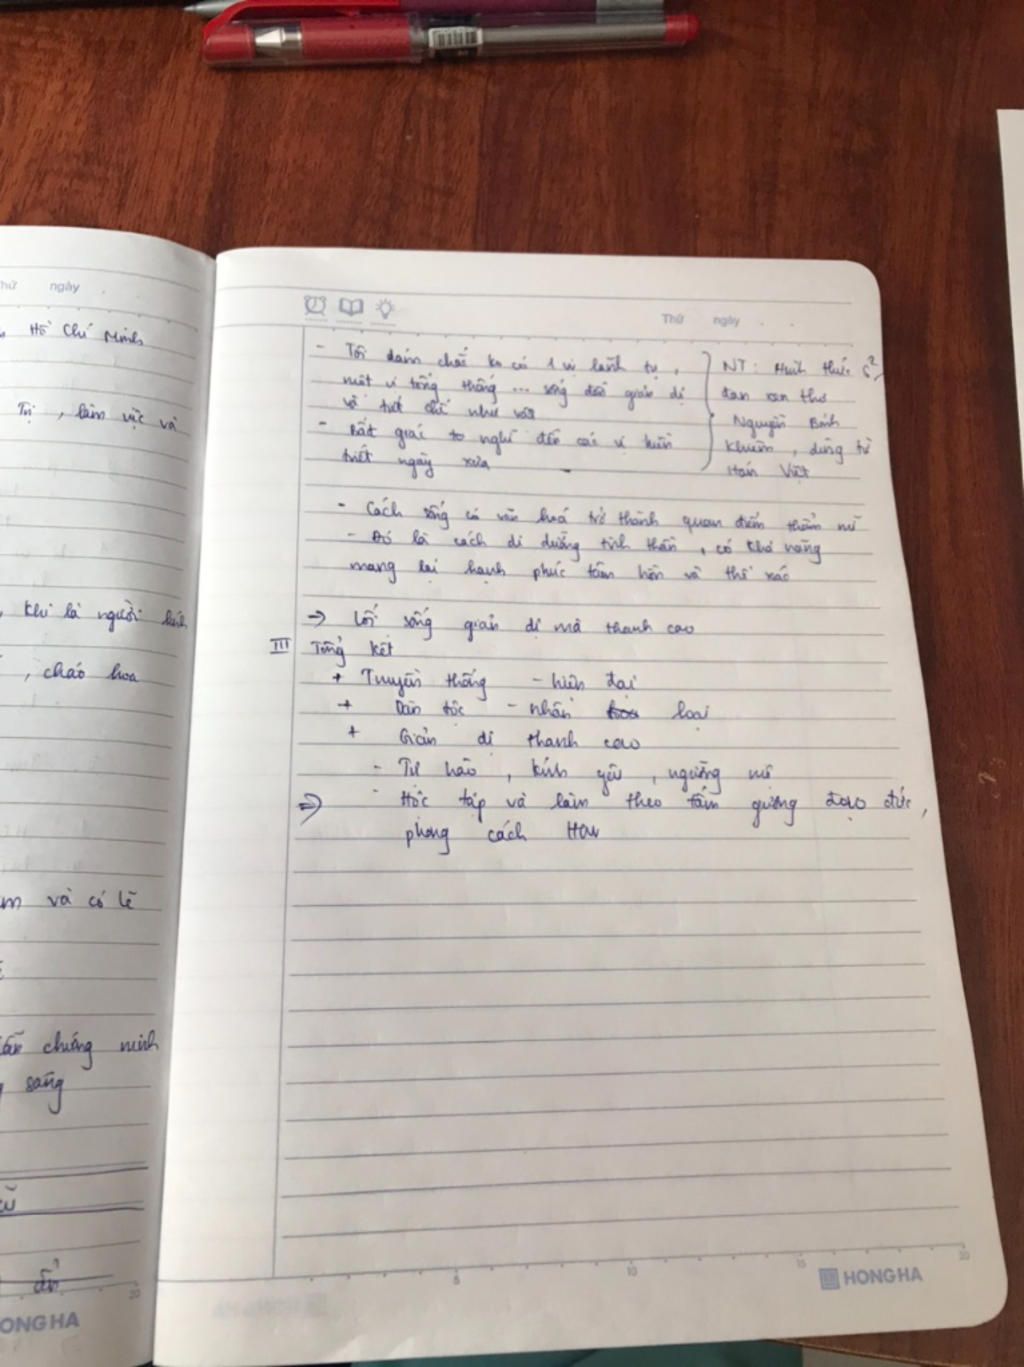 hứ ngày
Hồ Chí Minh
Trị, làm việc và
khi là người
, cháo hoa
và có lẽ
chứng minh
sang
ONG HA
Thứ ngày
- Tôi dám chắc ko có 1 vị lãnh tụ,
một vị tổng thống ... sống đến giản dị
và tiết chế như vậy
- Bất giác ta nghĩ đến các vị hiền
triết ngày xưa
NT: thức s²,
đan xen thơ
Nguyễn Bỉnh
Khiêm, dùng từ
Hán Việt
- Cách sống có văn hoá trở thành quan điểm thẩm mĩ
- Đó là cách di dưỡng tinh thần, có khả năng
mang lại hạnh phúc tâm hồn và thể xác
→ Lối sống giản dị mà thanh cao
III Tổng kết
+ Truyền thống - hiện đại
+ Dân tộc - nhân loại
+ Giản dị thanh cao
- Tự hào, kính yêu, ngưỡng mộ
⇒ - Học tập và làm theo tấm gương đạo đức,
phong cách HCM
5 10 15 20
HONG HA